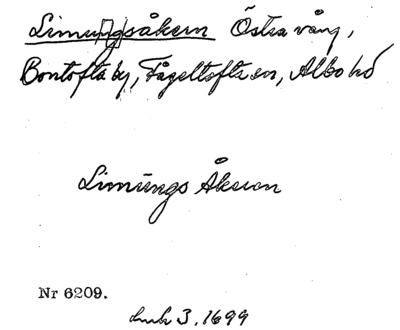 Limungsåkern Östra vång,
Bontofta by, Fågeltofta sn, Albo hd
Limüngs Åkeren
Nr 6209.
3. 1699